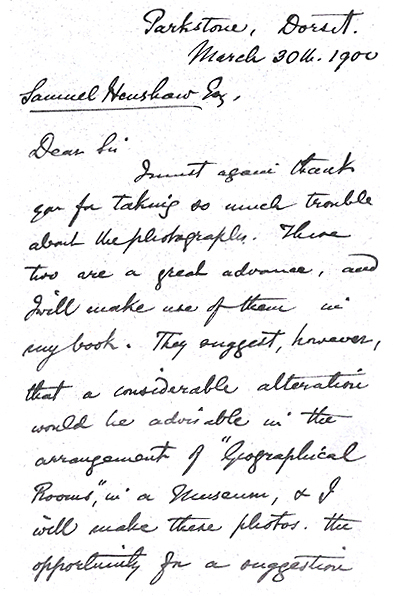 Parkstone, Dorset.
March 30th. 1900
Samuel Henshaw Esq.
Dear Sir
I must again thank
you for taking so much trouble
about the photographs. These
two are a great advance, and
I will make use of them in
my book. They suggest, however,
that a considerable alteration
would be advisable in the
arrangement of "Geographical
Rooms", in a Museum, & I
will make these photos. the
opportunity for a suggestion